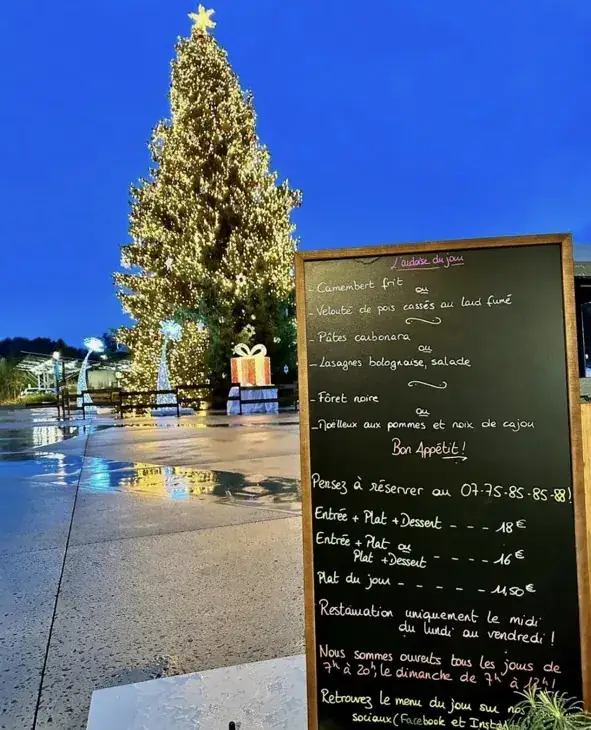 L'audace du jour
- Camembert frit
ou
- Velouté de pois cassés au lard fumé
- Pâtes carbonara
ou
- Lasagnes bolognaise, salade
- Fôret noire
ou
- Moëlleux aux pommes et noix de cajou
Bon Appétit !
Pensez à réserver au 07-75-85-85-88!
Entrée + Plat + Dessert - - - - 18€
Entrée + Plat
ou
Plat + Dessert - - - - - 16€
Plat du jour - - - - - - 11,50€
Restauration uniquement le midi
du lundi au vendredi !
Nous sommes ouverts tous les jours de
7h à 20h, le dimanche de 7h à 13h !
Retrouvez le menu du jour sur nos
sociaux (Facebook et Insta